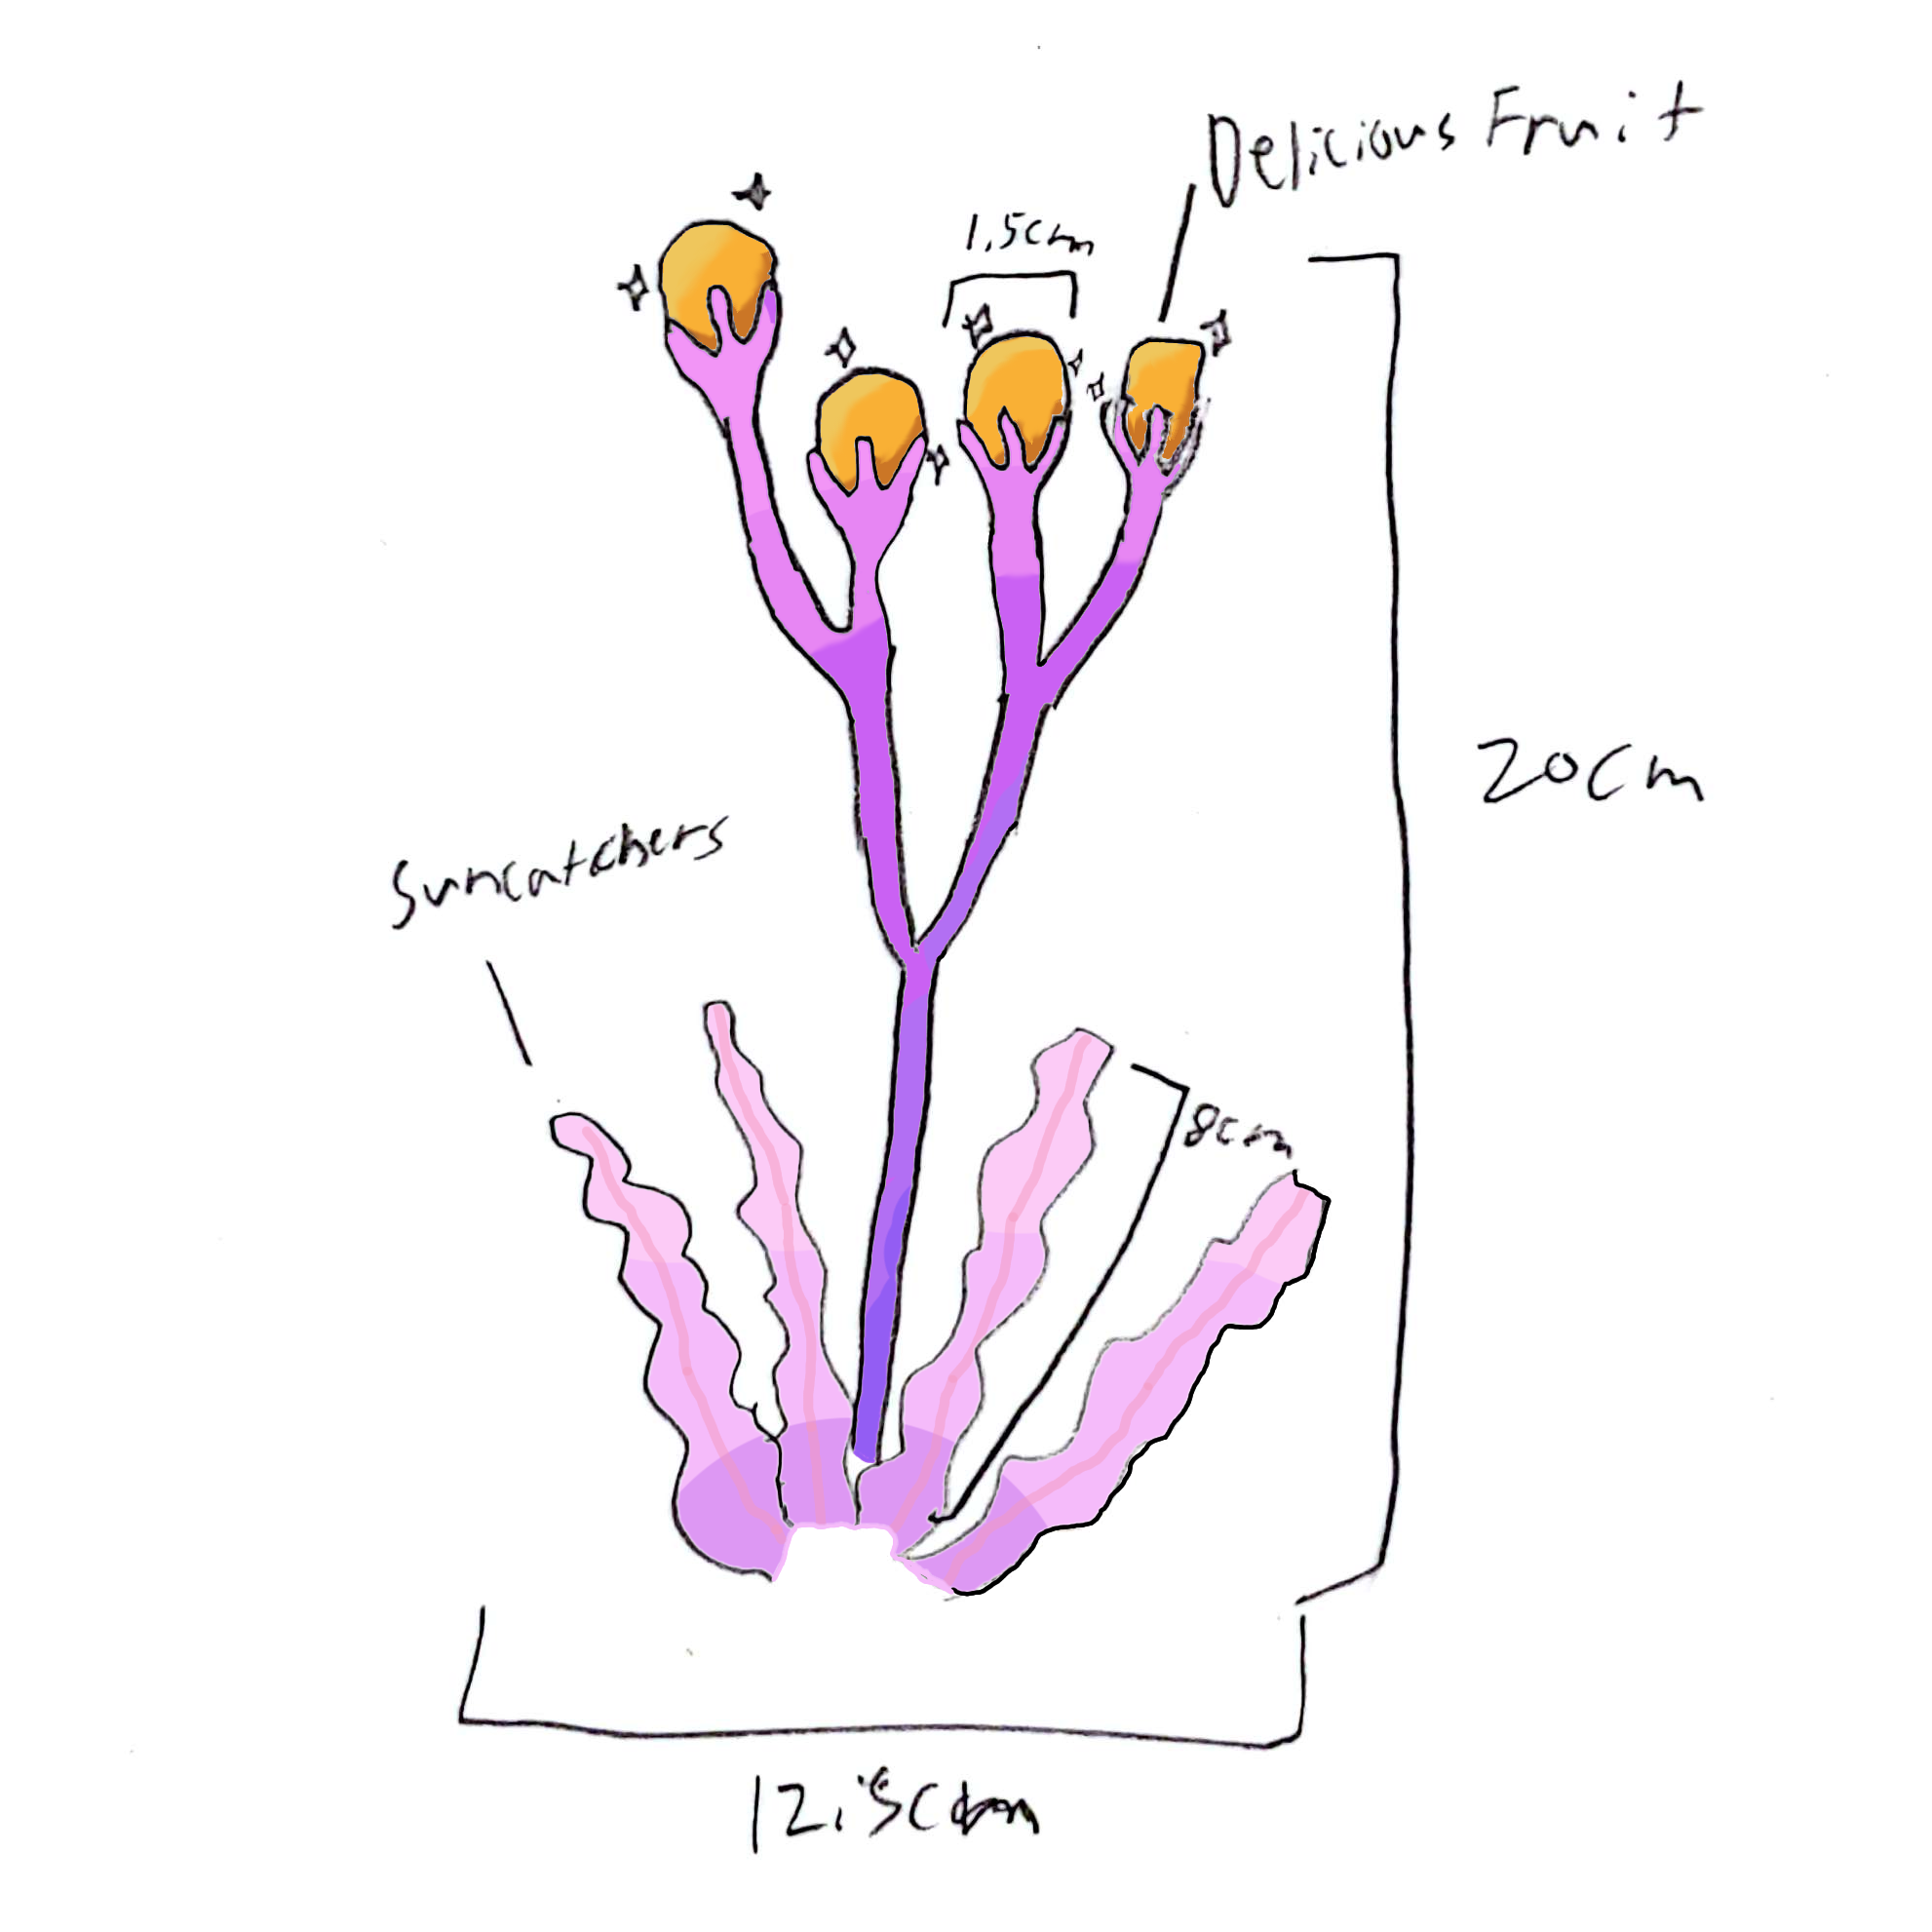 Delicious Fruit
1.5cm
20cm
Suncatchers
8cm
12.5cm